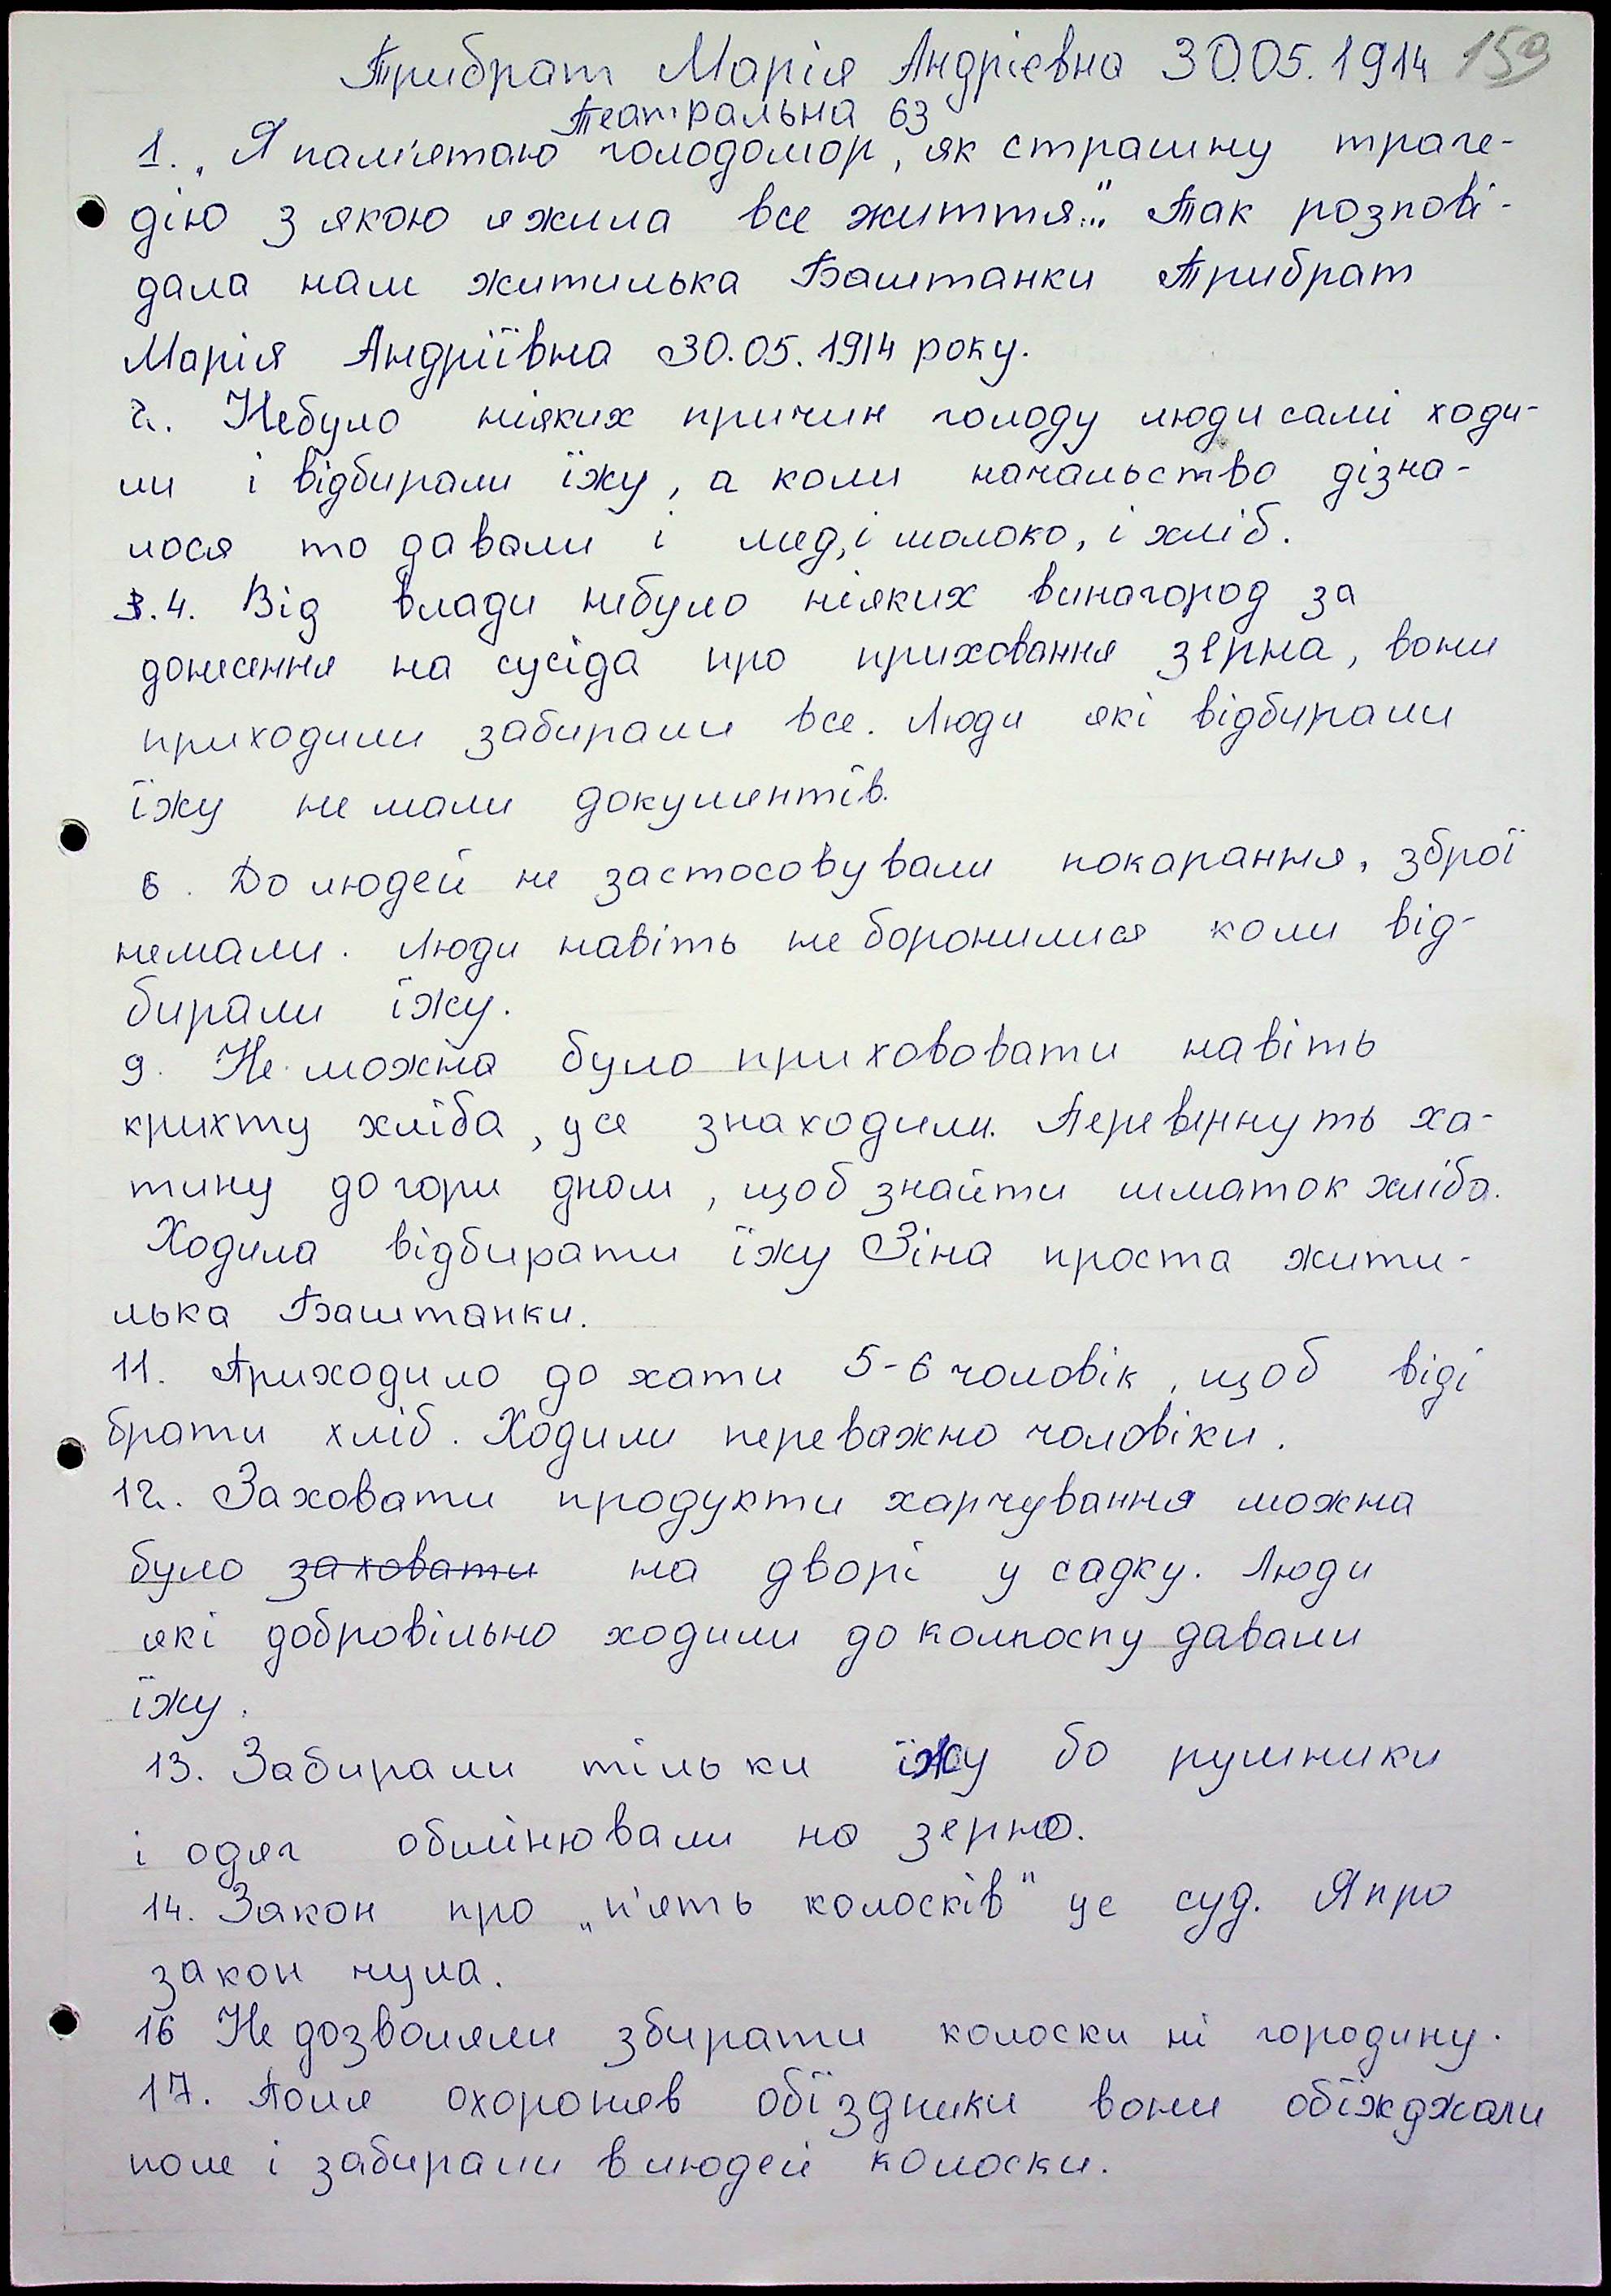 Прибрат Марія Андрієвна 30.05.1914 159
Театральна 63
1. „Я пам'ятаю голодомор, як страшну траге-
дію з якою я жила все життя..." Так розпові-
дала нам жителька Баштанки Прибрат
Марія Андріївна 30.05.1914 року.
2. Небуло ніяких причин голоду люди самі ходи-
ли і відбирали їжу, а коли начальство дізна-
лося то давали і мед, і молоко, і хліб.
3.4. Від влади небуло ніяких винагород за
донесення на сусіда про приховання зерна, вони
приходили забирали все. Люди які відбирали
їжу не мали документів.
6. До людей не застосовували покарання, зброї
немали. Люди навіть не боронилися коли від-
бирали їжу.
9. Не можна було приховувати навіть
крихту хліба, усе знаходили. Перевернуть ха-
тину до гори дном, щоб знайти шматок хліба.
Ходила відбирати їжу Зіна проста жите-
лька Баштанки.
11. Приходило до хати 5-6 чоловік, щоб віді
брати хліб. Ходили переважно чоловіки.
12. Заховати продукти харчування можна
було заховати на дворі у садку. Люди
які добровільно ходили до колгоспу давали
їжу.
13. Забирали тільки їжу бо рушники
і одяг обмінювали на зерно.
14. Закон про „п'ять колосків" це суд. Я про
закон чула.
16 Не дозволяли збирати колоски ні городину.
17. Поля охороняв обїздники вони обїжджали
поле і забирали в людей колоски.